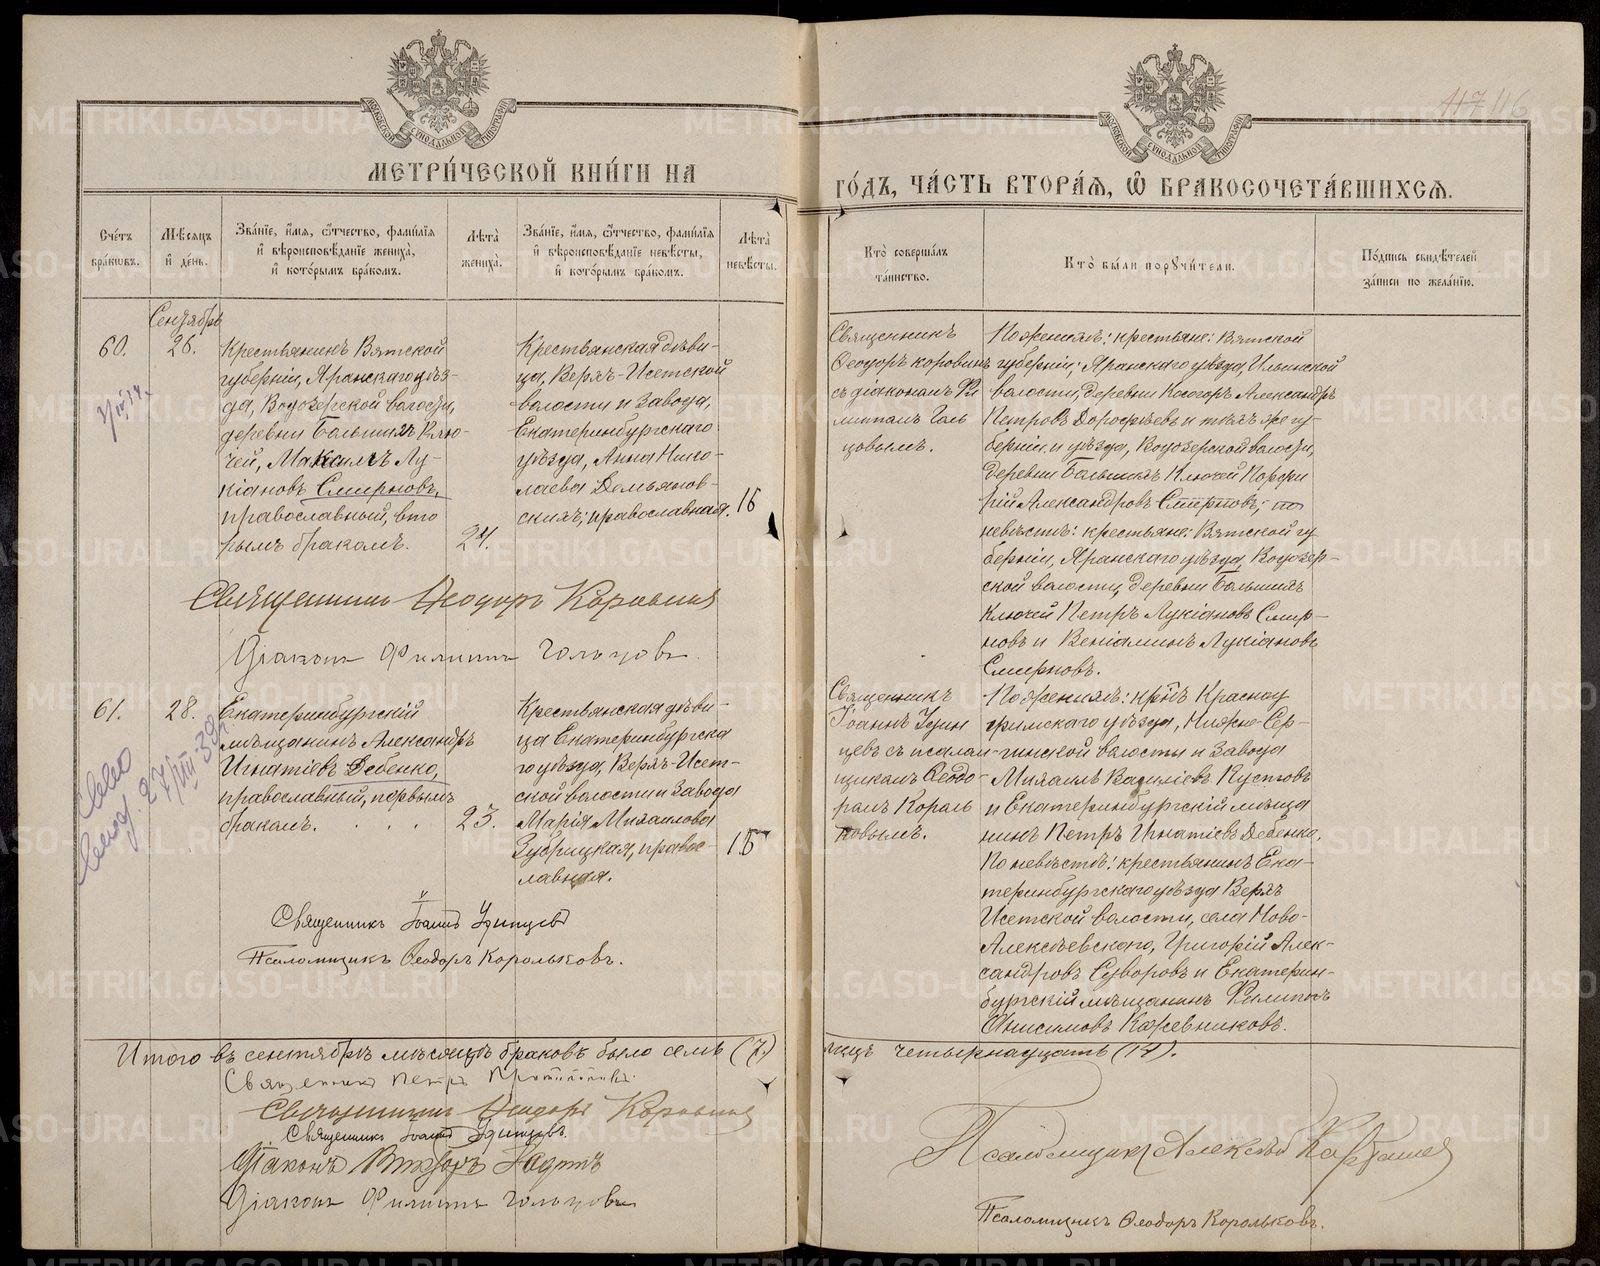 МЕТРИ́ЧЕСКОЙ КНИ́ГИ НА
ГО́ДЪ, ЧА́СТЬ ВТОРА́Ѧ, Ѽ БРАКОСОЧЕТА́ВШИХСѦ.
117 116
Сче́тъ бра́ковъ.
Мѣ́сяцъ и҆ де́нь.
Зва́нїе, и҆́мѧ, ѻ҆́тчество, фами́лїѧ и҆ вѣроисповѣ́данїе жениха̀, и҆ кото́рымъ бра́комъ.
Лѣ́та жениха̀.
Зва́нїе, и҆́мѧ, ѻ҆́тчество, фами́лїѧ и҆ вѣроисповѣ́данїе невѣ́сты, и҆ кото́рымъ бра́комъ.
Лѣ́та невѣ́сты.
Кто̀ соверша́лъ та́инство.
Кто̀ бы́ли порꙋчи́тели.
По́дпись свидѣ́телей за́писи по жела́нїю.
Сентябрь
60.
26.
Крестьянинъ Вятской
губерніи, Яранскаго уѣз-
да, Водозерской волости,
деревни Большихъ Клю-
чей, Максимъ Лу-
кіановъ Смирновъ,
православный, вто
рымъ бракомъ.
24.
Крестьянская дѣви-
ца, Верхъ-Исетской
волости и завода,
Екатеринбургскаго
уѣзда, Анна Нико-
лаева Демьянов-
скихъ, православная.
16
Священникъ
Ѳеодоръ Коровинъ
съ діакономъ Фи
липпомъ Голь
цовымъ.
По женихѣ: крестьяне: Вятской
губерніи, Яранскаго уѣзда, Ильинской
волости, деревни Косогоръ Александръ
Петровъ Дорофѣевъ и тѣхъ же гу
берніи и уѣзда, Водозерской волости,
деревни Большихъ Ключей Порфи
рій Александровъ Смирновъ; по
невѣстѣ: крестьяне: Вятской гу
берніи, Яранскаго уѣзда, Водозер-
ской волости, деревни Большихъ
Ключей Петръ Лукіановъ Смир-
новъ и Веніаминъ Лукіановъ
Смирновъ.
Священникъ Ѳеодоръ Коровинъ
Діаконъ Филиппъ Гольцовъ.
61.
28.
Екатеринбургскій
мѣщанинъ Александръ
Игнатіевъ Дебенко,
православный, первымъ
бракомъ.
23.
Крестьянская дѣви-
ца Екатеринбургска
го уѣзда, Верхъ-Исет-
ской волости и завода
Марія Михаилова
Зубрицкая, правос-
лавная.
15
Священникъ
Іоаннъ Удин
цевъ съ псалом-
щикомъ Ѳеодо-
ромъ Король
ковымъ.
По женихѣ: кр-нъ Красноу
фимскаго уѣзда, Нижне-Сер-
гинской волости и завода
Михаилъ Василіевъ Кустовъ
и Екатеринбургскій мѣща
нинъ Петръ Игнатіевъ Дебенко,
По невѣстѣ: крестьянинъ Ека-
теринбургскаго уѣзда Верхъ
Исетской волости, села Ново-
Алексѣевскаго, Григорій Алек-
сандровъ Суворовъ и Екатерин-
бургскій мѣщанинъ Филиппъ
Анисимовъ Кожевниковъ.
Священникъ Іоаннъ Удинцевъ
Псаломщикъ Ѳеодоръ Корольковъ.
Итого въ сентябрѣ мѣсяцѣ браковъ было семь (7.)
лицъ четырнадцать (14).
Священникъ Петръ
Священникъ Ѳеодоръ Коровинъ
Священникъ Іоаннъ Удинцевъ.
Діаконъ Викторъ
Діаконъ Филиппъ Гольцовъ
Псаломщикъ Алексѣй Карташевъ
Псаломщикъ Ѳеодоръ Корольковъ.
METRIKI.GASO-URAL.RU